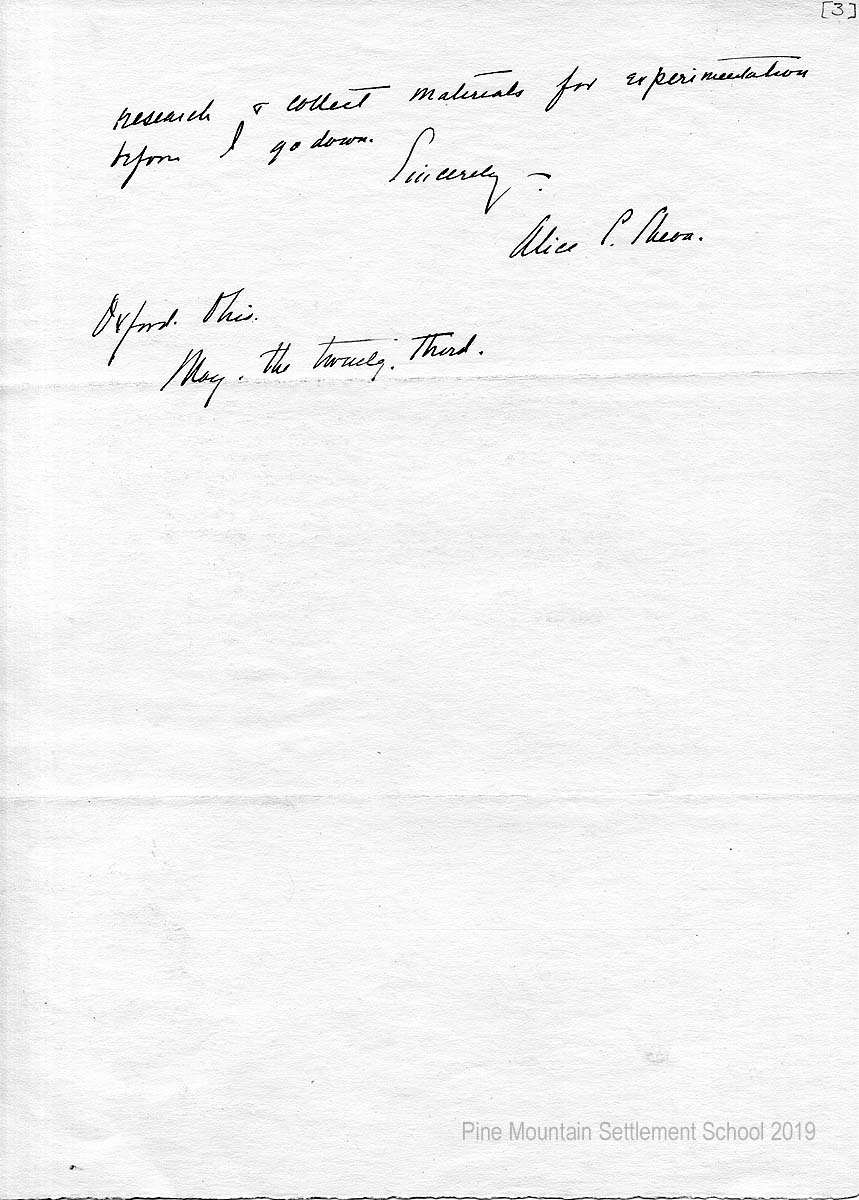 [3]
research & collect materials for experimentation
before I go down.
Sincerely –
Alice P.
Oxford. Ohio.
May. the twenty. third.
Pine Mountain Settlement School 2019